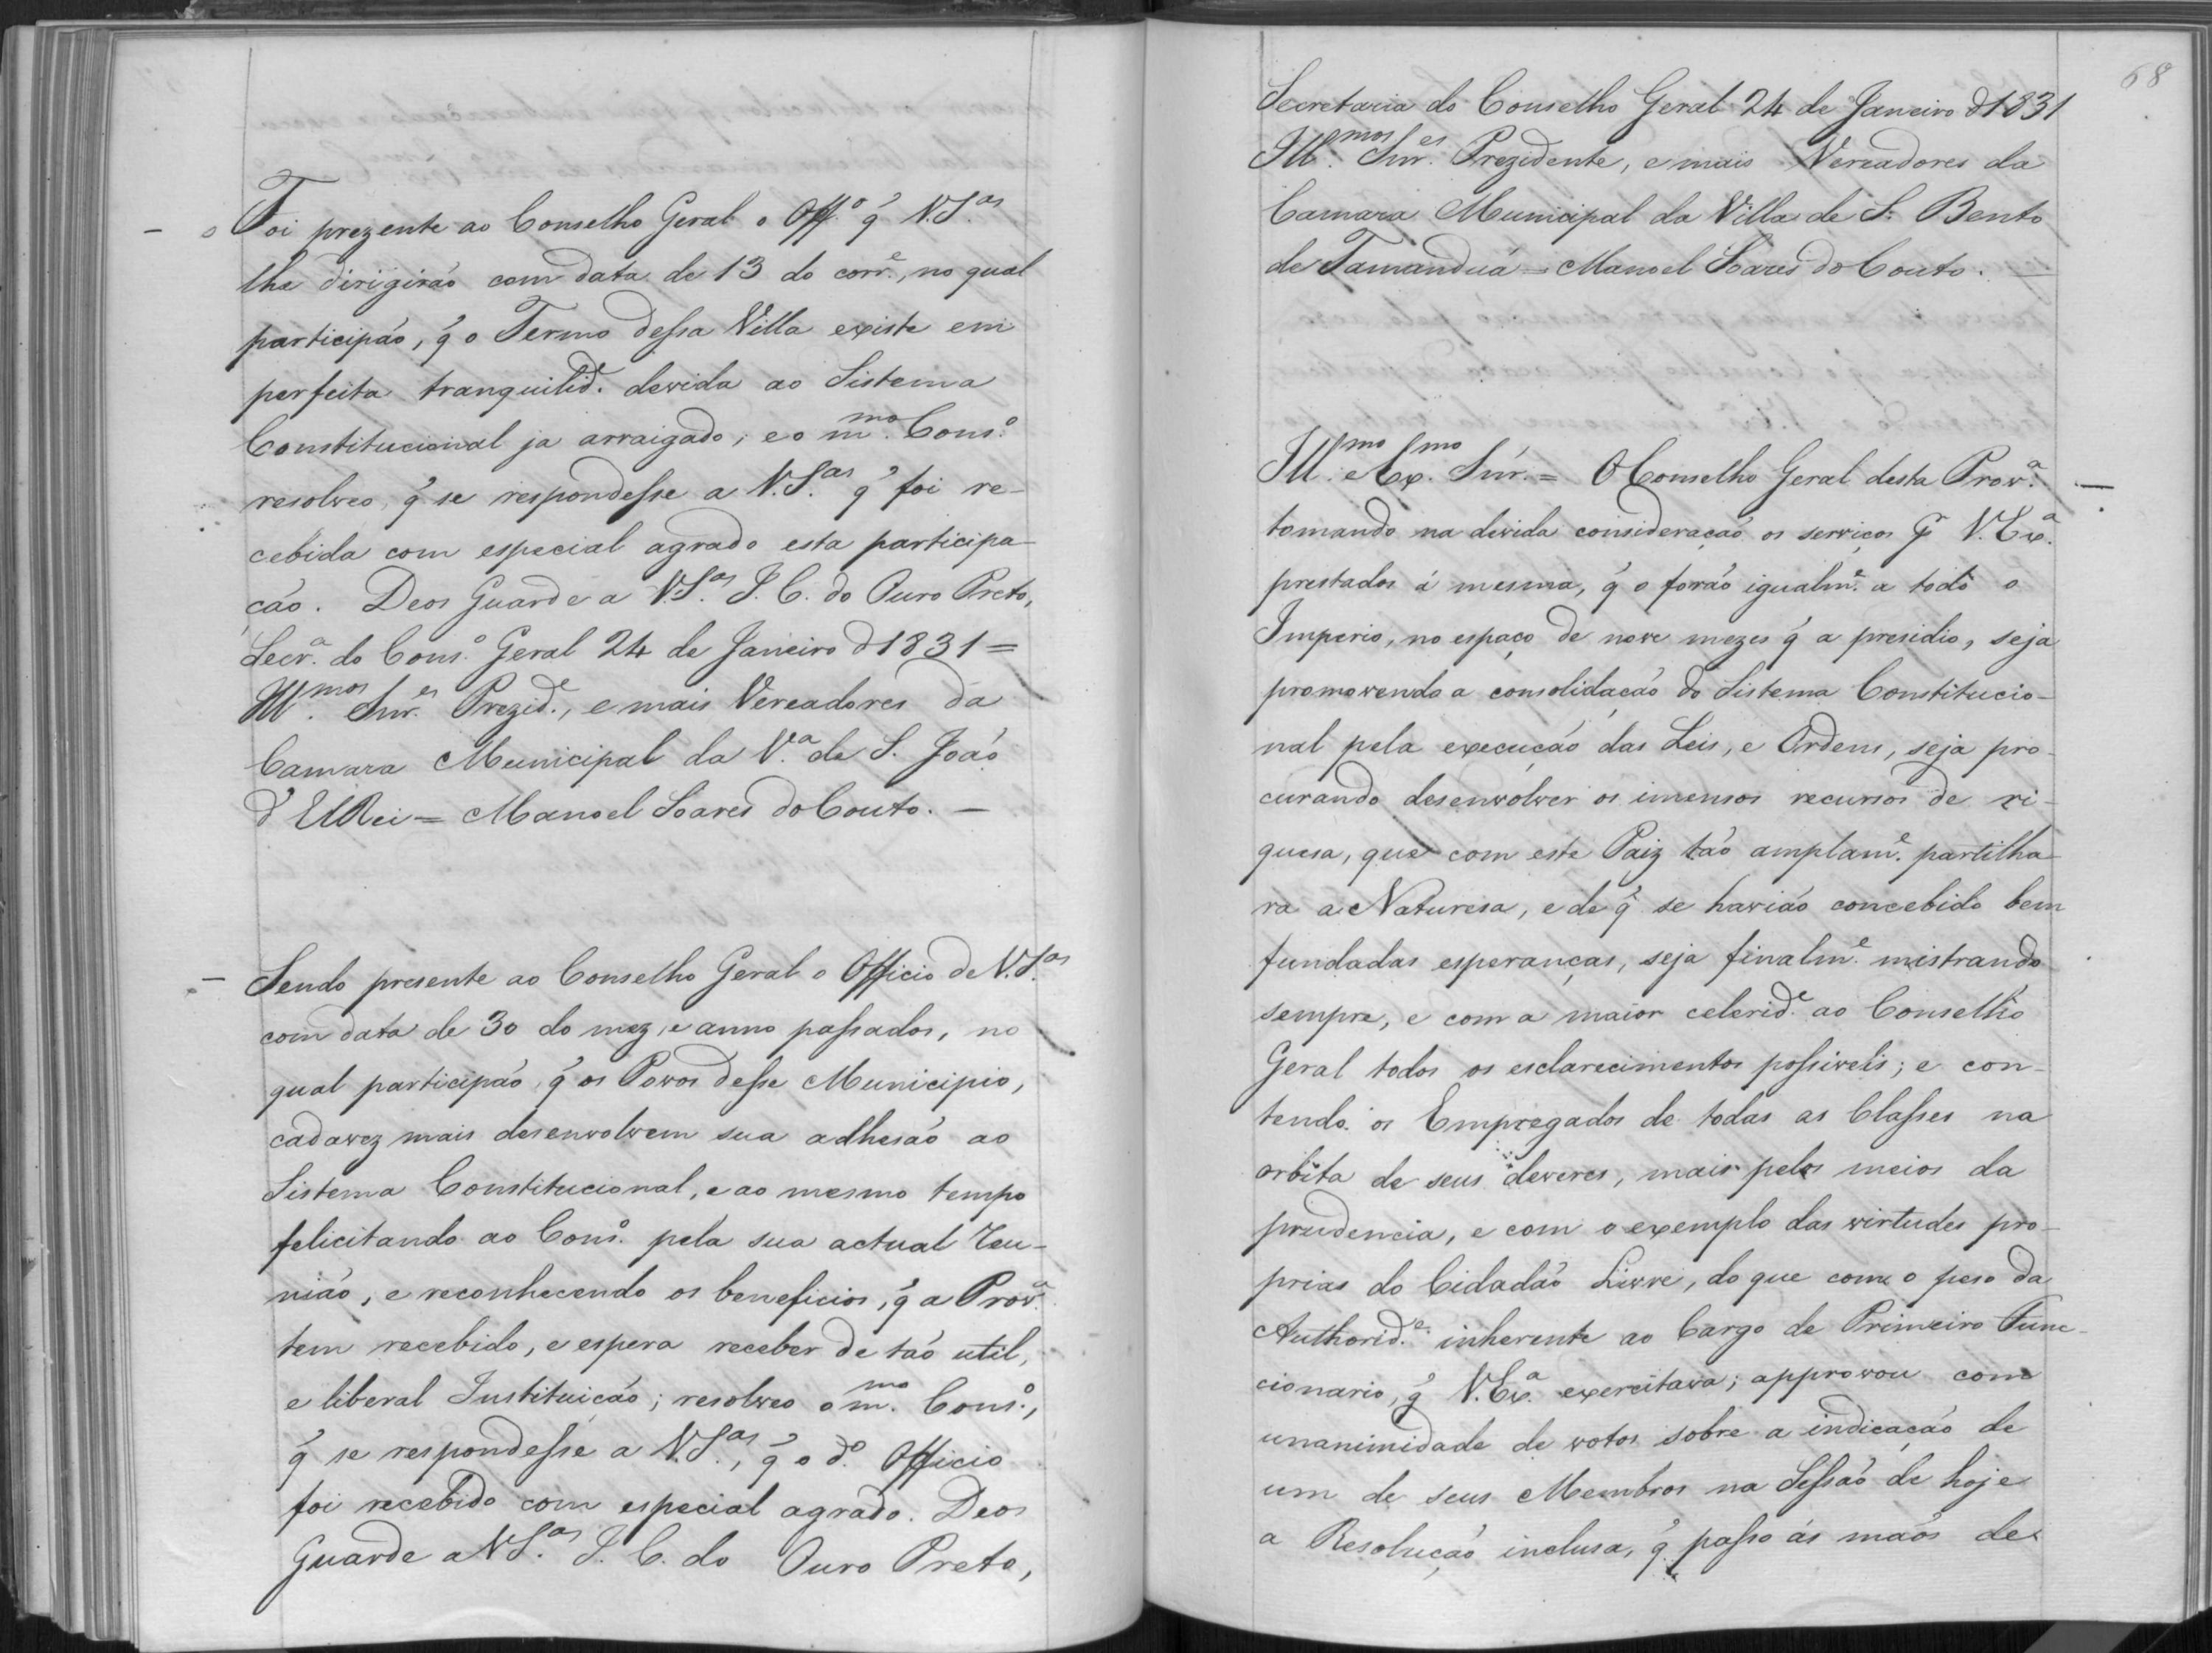 Foi prezente ao Conselho Geral o Off.º q̃ V.S.as
lhe dirigirão com data de 13 do corr.e, no qual
participão, q̃ o Termo dessa Villa existe em
perfeita tranquilid.e devida ao Sistema
Constitucional ja arraigado; e o m.mo Cons.º
resolveo, q̃ se respondesse a V.S.as q̃ foi re-
cebida com especial agrado esta participa-
ção. Deos Guarde a V.S.as I. C. do Ouro Preto,
Secr.a do Cons.º Geral 24 de Janeiro d 1831 =
Ill.mos Snr.es Prezid.e, e mais Vereadores da
Camara Municipal da V.a de S. João
d'ElRei = Manoel Soares do Couto. —
Sendo presente ao Conselho Geral o Officio de V.S.as
com data de 30 do mez, e anno passados, no
qual participão, q̃ os Povos desse Municipio,
cadavez mais desenvolvem sua adhesão ao
Sistema Constitucional, e ao mesmo tempo
felicitando ao Cons.º pela sua actual Reu-
nião, e reconhecendo os beneficios, q̃ a Prov.a
tem recebido, e espera receber de tão util,
e liberal Instituição; resolveo o m.mo Cons.º,
q̃ se respondesse a V.S.as, q̃ o d.º Officio
foi recebido com especial agrado. Deos
Guarde a V.S.as I. C. do Ouro Preto,
68
Secretaria do Conselho Geral 24 de Janeiro d 1831
Ill.mos Snr.es Prezidente, e mais Vereadores da
Camara Municipal da Villa de S. Bento
de Tamanduá = Manoel Soares do Couto. —
Ill.mo e Ex.mo Snr. = O Conselho Geral desta Prov.a
tomando na devida consideração os serviços p̃ V.Ex.a
prestados á mesma, q̃ o forão igualm.e a todo o
Imperio, no espaço de nove mezes q̃ a presidio, seja
promovendo a consolidação do Sistema Constitucio-
nal pela execução das Leis, e Ordens, seja pro-
curando desenvolver os imensos recursos de ri-
quesa, que com este Paiz tão amplam.e partilha-
ra a Naturesa, e de q̃ se havião concebido bem
fundadas esperanças, seja finalm.e mistrando
sempre, e com a maior celerid.e ao Conselho
Geral todos os esclarecimentos possiveis; e con-
tendo os Empregados de todas as Classes na
orbita de seus deveres, mais pelos meios da
prudencia, e com o exemplo das virtudes pro-
prias do Cidadão Livre, do que com o peso da
Authorid.e inherente ao Cargo de Primeiro Func-
cionario, q̃ V.Ex.a exercitava; approvou com
unanimidade de votos sobre a indicação de
um de seus Membros na Sessão de hoje
a Resolução inclusa, q̃ passo ás mãos de